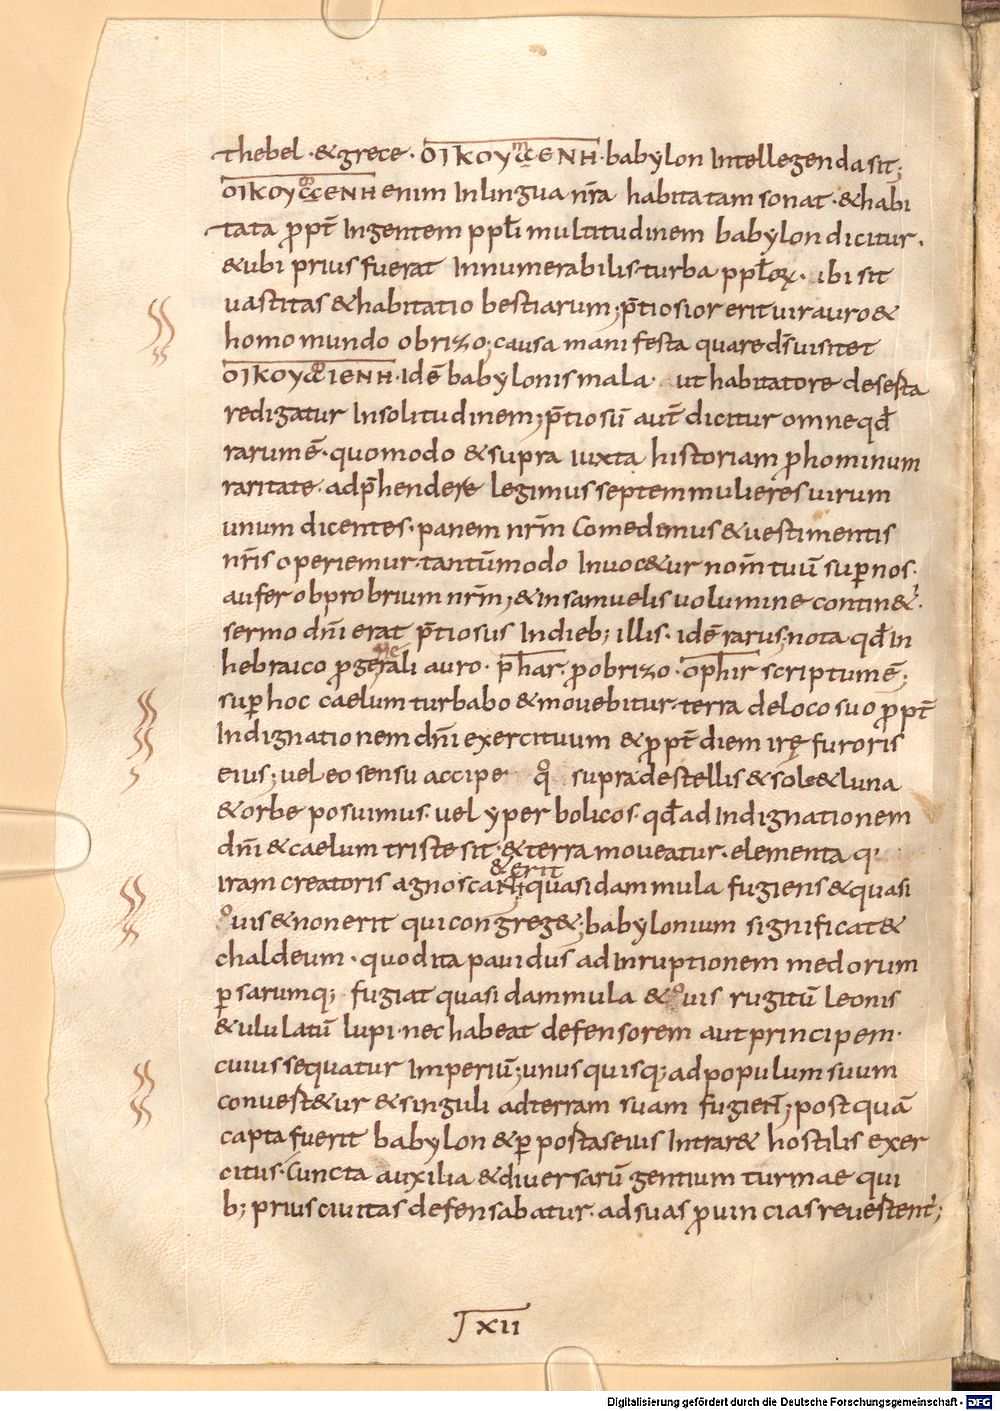 thebel · &grece · OIKOYMENH · babylon Intellegenda sit;
OIKOYMENH enim In lingua nr̄a habitatam sonat · & habi
tata ꝓpt̄ Ingentem ppl̄i multitudinem babylon dicitur ·
& ubi prius fuerat Innumerabilis turba ppl̄oꝝ · ibi sit
uastitas & habitatio bestiarum; p̄tiosior erit uir auro &
homo mundo obrizo; causa manifesta quare dn̄s uisitet
OIKOYMENH · Idē babylonis mala · ut habitatore deserta
redigatur In solitudinem; p̄tiosū aut̄ dicitur omne qđ
rarum ē · quomodo & supra iuxta historiam ꝓ hominum
raritate · adp̄hendere legimus septem mulieres uirum
unum dicentes · panem nr̄m Comedimus & uestimentis
nr̄is operiemur · tantūmodo Inuoc&ur nom̄ tuū suꝑ nos ·
aufer obprobrium nr̄m; & In samuelis uolumine contin&' ·
sermo dn̄i erat p̄tiosus In dieb; illis · idē rarus; nota qđ In
hebraico ꝓ generali auro · phar · ꝓ obrizo · ophir scriptum ē;
suꝑ hoc caelum turbabo & mouebitur · terra de loco suo ꝓpt̄
Indignationem dn̄i exercituum & ꝓpt̄ diem irę furoris
eius; uel eo sensu accipe qͦ supra de stellis & sole & luna
& orbe posuimus · uel yperbolicos · qđ ad Indignationem
dn̄i & caelum triste sit · & terra moueatur · elementa
& erit
iram creatoris agnoscant; quasi dammula fugiens & quasi
ouis & non erit qui congreg&; babylonium significat &
chaldeum · quod ita pauidus ad Inruptionem medorum
ꝑsarumq; fugiat quasi dammula & ouis rugitū leonis
& ululatū lupi · nec habeat defensorem aut principem ·
cuius sequatur Imperiū; unusquisq; ad populum suum
conuest&ur & singuli ad terram suam fugient; postquā
capta fuerit babylon & ꝑ postas eius Intrar& hostilis exer
citus · Cuncta auxilia & diuersarū gentium turmae qui
b; prius ciuitas defensabatur · ad suas ꝓuincias reuestent';
XII
Digitalisierung gefördert durch die Deutsche Forschungsgemeinschaft - DFG